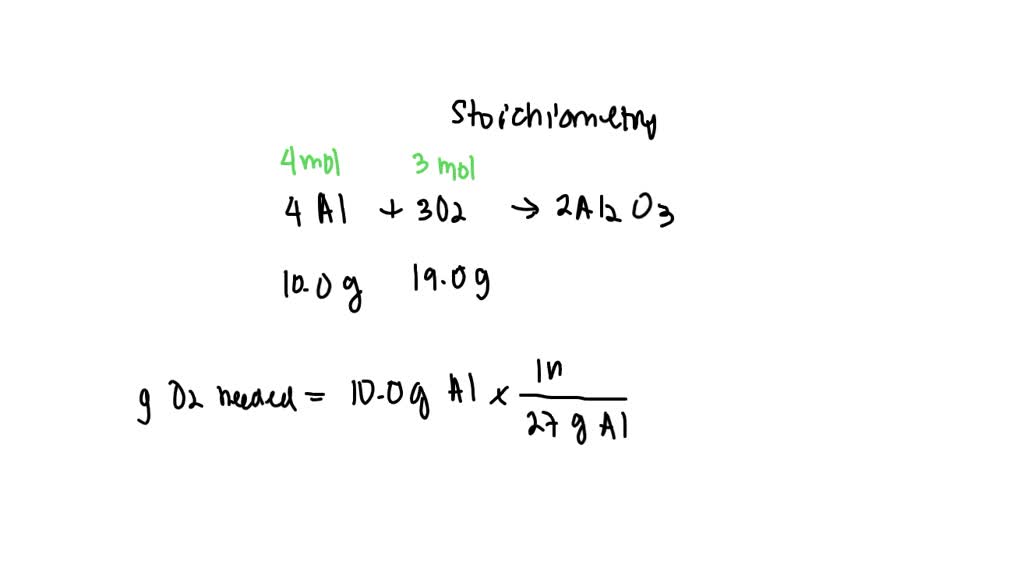 Stoichiometry
4 mol 3 mol
4 Al + 3O2 → 2Al2O3
10.0 g 19.0 g
g O2 needed = 10.0 g Al × 1n
27 g Al